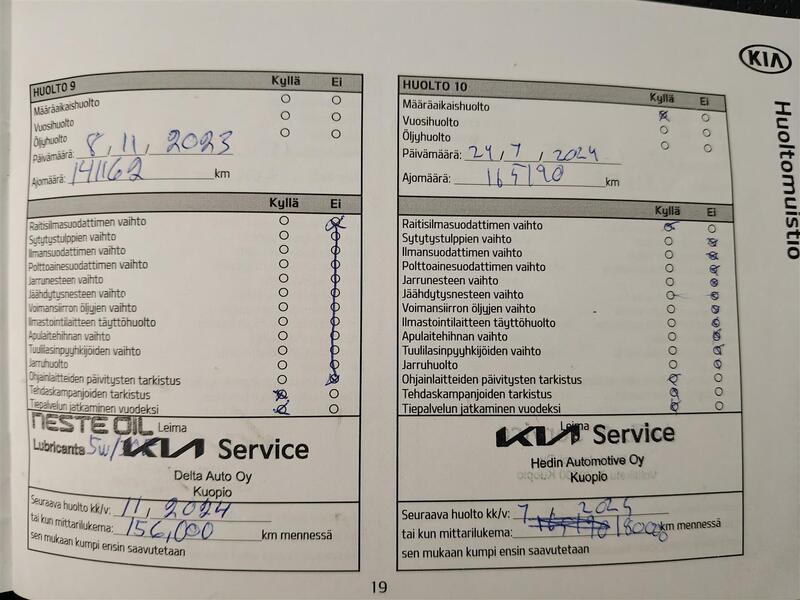 KIA
Huoltomuistio
HUOLTO 9 Kyllä Ei
Määräaikaishuolto
Vuosihuolto
Öljyhuolto
Päivämäärä: 8, 11, 2023
Ajomäärä: 141162 km
Kyllä Ei
Raitisilmasuodattimen vaihto
Sytytystulppien vaihto
Ilmansuodattimen vaihto
Polttoainesuodattimen vaihto
Jarrunesteen vaihto
Jäähdytysnesteen vaihto
Voimansiirron öljyjen vaihto
Ilmastointilaitteen täyttöhuolto
Apulaitehihnan vaihto
Tuulilasinpyyhkijöiden vaihto
Jarruhuolto
Ohjainlaitteiden päivitysten tarkistus
Tehdaskampanjoiden tarkistus
Tiepalvelun jatkaminen vuodeksi
NESTE OIL Leima
Lubricants 5w/
KIA Service
Delta Auto Oy
Kuopio
Seuraava huolto kk/v: 11, 2024
tai kun mittarilukema: 156,000 km mennessä
sen mukaan kumpi ensin saavutetaan
HUOLTO 10 Kyllä Ei
Määräaikaishuolto
Vuosihuolto
Öljyhuolto
Päivämäärä: 24, 7, 2024
Ajomäärä: 165190 km
Kyllä Ei
Raitisilmasuodattimen vaihto
Sytytystulppien vaihto
Ilmansuodattimen vaihto
Polttoainesuodattimen vaihto
Jarrunesteen vaihto
Jäähdytysnesteen vaihto
Voimansiirron öljyjen vaihto
Ilmastointilaitteen täyttöhuolto
Apulaitehihnan vaihto
Tuulilasinpyyhkijöiden vaihto
Jarruhuolto
Ohjainlaitteiden päivitysten tarkistus
Tehdaskampanjoiden tarkistus
Tiepalvelun jatkaminen vuodeksi
Leima
KIA Service
Hedin Automotive Oy
Kuopio
Seuraava huolto kk/v: 7, 2025
tai kun mittarilukema: 165190 180000 km mennessä
sen mukaan kumpi ensin saavutetaan
19